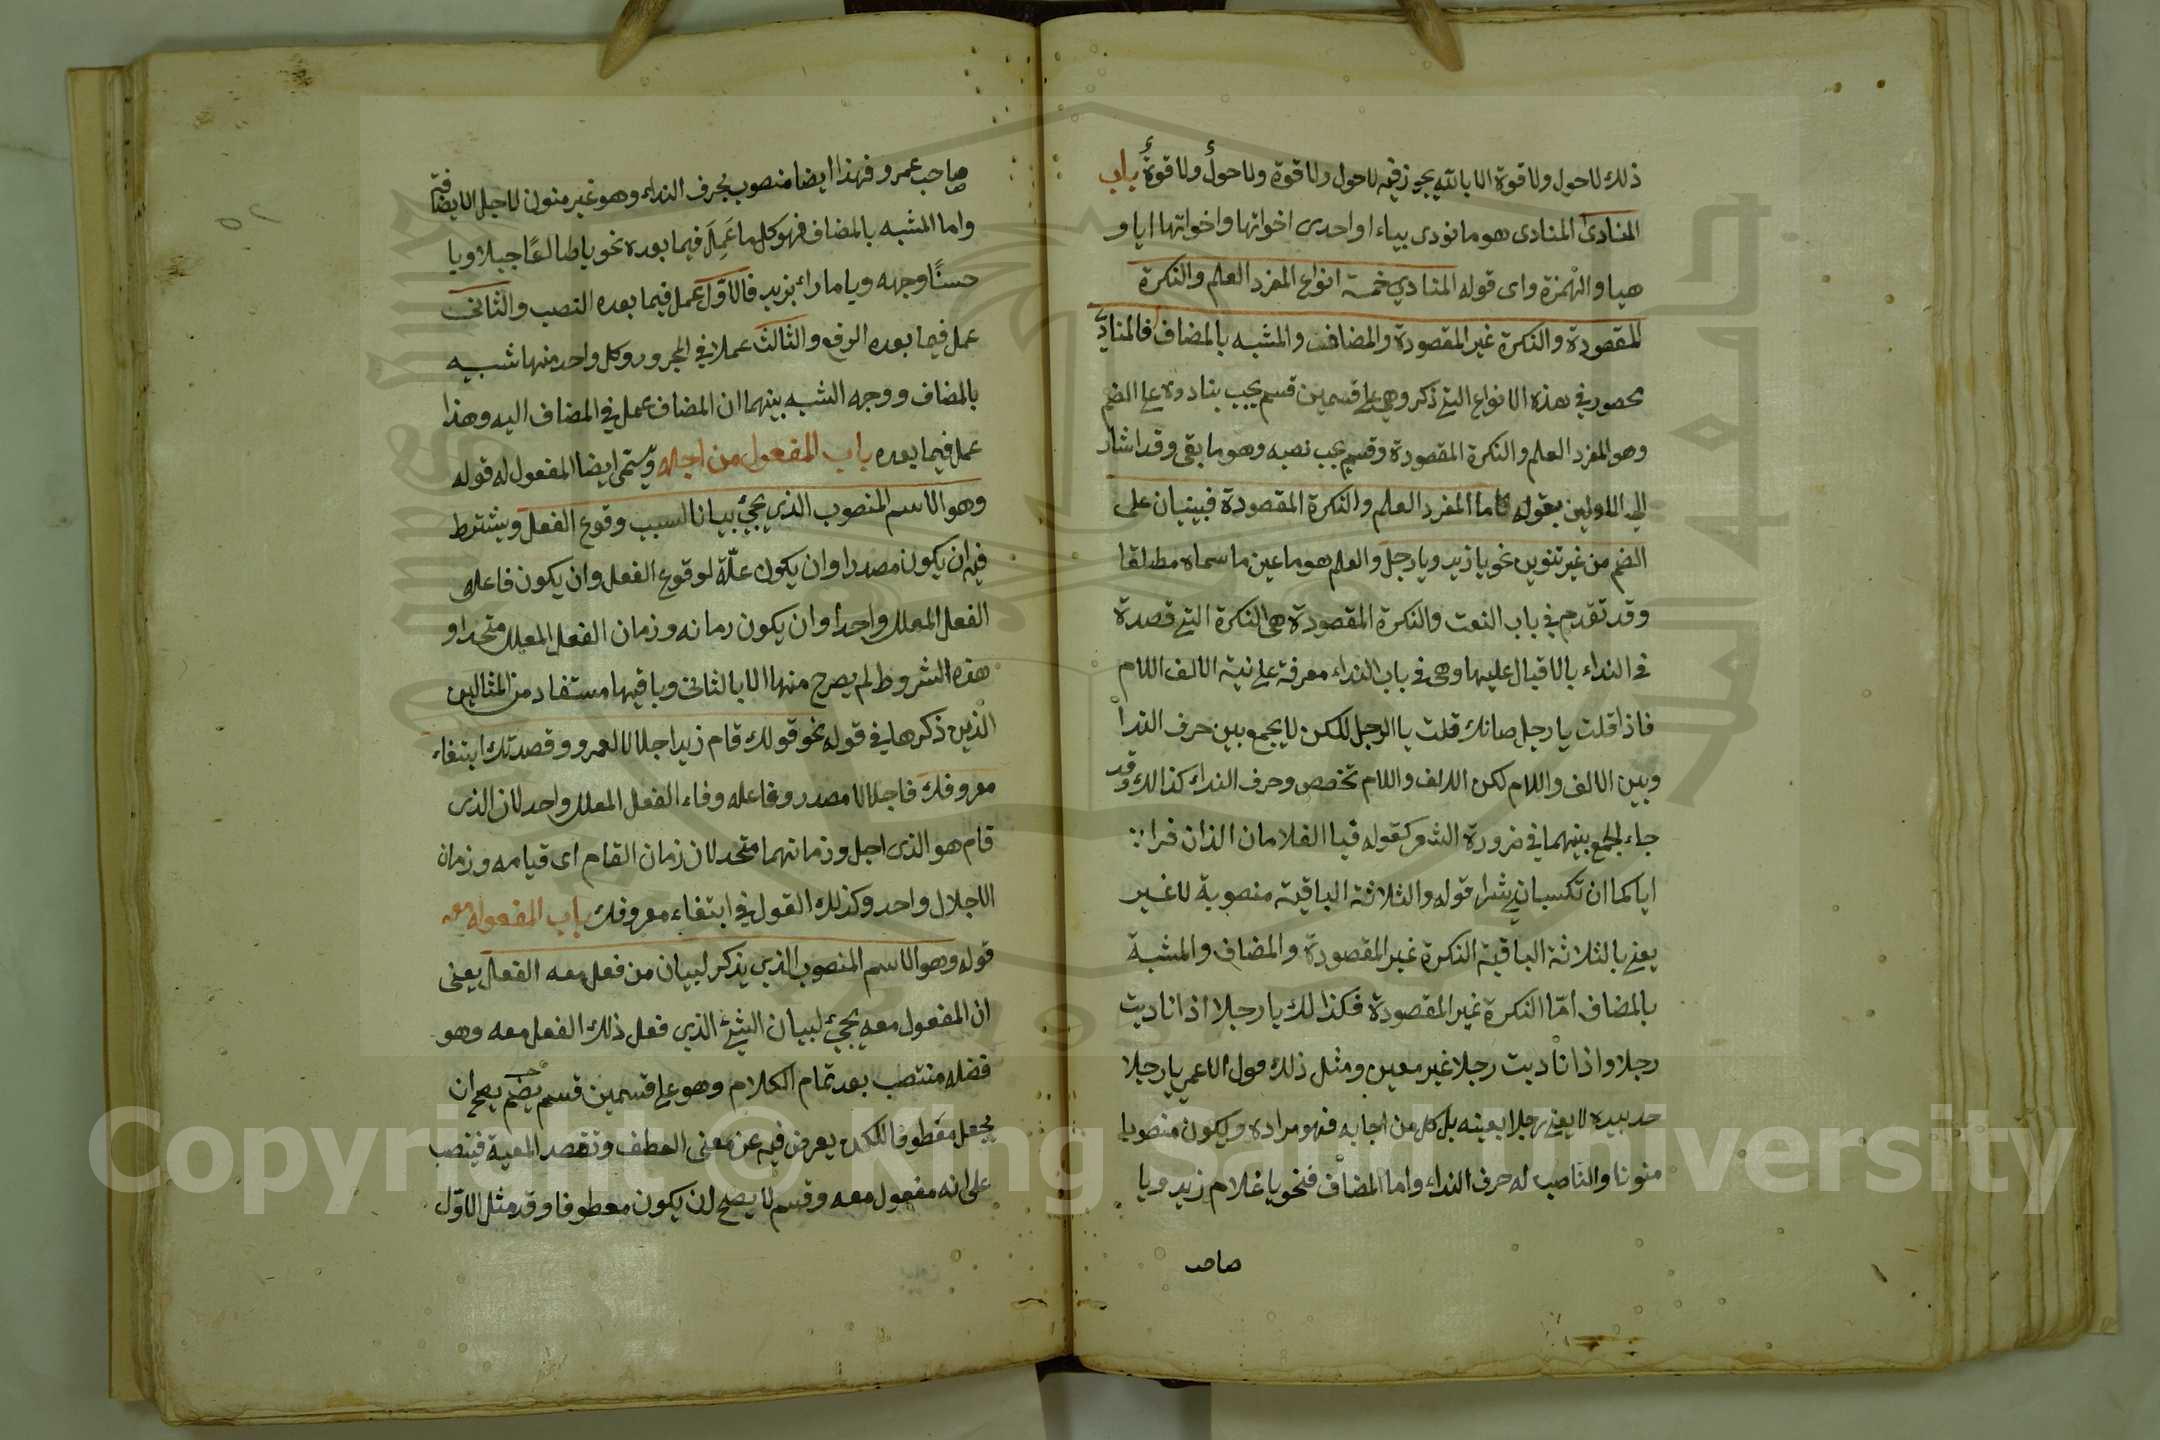 ذلك لاحول ولا قوة الا بالله يجوز فيه لاحول ولا قوة ولا حولٌ ولا قوةٌ باب
المنادى المنادى هو ما نودى بياء او احدى اخواتها واخواتها ايا و
هيا والهمزة واى قوله المنادي خمسة انواع المفرد العلم والنكرة
المقصودة والنكرة غير المقصودة والمضاف والمشبه بالمضاف فالمنادي
محصور في هذه الانواع التي ذكر وهي على قسمين قسم يجب بناوه على الضم
وهو المفرد العلم والنكرة المقصودة وقسم يجب نصبه وهو ما بقى وقد اشار
الى الاولين بقوله فاما المفرد العلم والنكرة المقصودة فيبنيان على
الضم من غير تنوين نحو يا زيد ويا رجل والعلم هو ما عين ما سماه مطلقا
وقد تقدم في باب النعت والنكرة المقصودة هي النكرة التي قصدة
في النداء بالاقبال عليها وهى في باب النداء معرفة على نية الالف اللام
فاذا قلت يا رجل صانك قلت يا الرجل للكن لا يجمع بين حرف الندأ
وبين الالف واللام لكن اللالف واللام تخصص وحرف النداء كذالك وقد
جاء الجمع بينهما في ضرورة الشعر كقوله فيا الغلامان الذان فرا
اياكما ان تكسبان شرا قوله والثلاثة الباقية منصوبة لاغير
يعني بالثلاثة الباقية النكرة غير المقصودة والمضاف والمشبة
بالمضاف امّا النكرة غير المقصودة فكذالك يا رجلا اذا ناديت
رجلا واذا ناديت رجلا غير معين ومثل ذلك قول الاعمي يا رجلا
خد بيده لا يعني رجلا بعينه بل كل من اجابه فهو مراده ويكون منصوبا
منونا والناصب له حرف النداء واما المضاف فنحو يا غلام زيد ويا
صاحب
صاحب عمرو فهذا ايضا منصوب بحرف النداء وهو غير منون لاجل الايضافة
واما المشبه بالمضاف فهو كل ما عَمِلَ فيما بعده نحو يا طالعًا جبلا ويا
حسنًا وجهه ويا مارا بزيد فالاوّل عمل فيما بعده النصب والثانى
عمل فيما بعده الرفع والثالث عملا في المجرور وكل واحد منها شبيه
بالمضاف ووجه الشبه بينهما ان المضاف عمل في المضاف اليه وهذا
عمل فيما بعده باب المفعول من اجله ويسمى ايضا المفعول له قوله
وهو الاسم المنصوب الذي يجيء بيانا لسبب وقوع الفعل ويشترط
فيه ان يكون مصدرا وان يكون علّة لوقوع الفعل وان يكون فاعله
الفعل المعلل واحدا وان يكون زمانه وزمان الفعل المعلل متحدا و
هذه الشروط لم يصرح منها الا بالثانى وباقيها مستفاد من المثالين
الذين ذكرها في قوله نحو قولك قام زيد اجلالا لعمرو وقصدتك ابتغاء
معروفك فاجلالا مصدر وفاعله وفاء الفعل المعلل واحد لان الذى
قام هو الذى اجل وزمانهما متحد لان زمان القام اى قيامه وزمان
الاجلال واحد وكذلك القول في ابتغاء معروفك باب المفعول معه
قوله وهو الاسم المنصوب الذي يذكر لبيان من فعل معه الفعل يعنى
ان المفعول معه يجيء لبيان الشئ الذي فعل ذلك الفعل معه وهو
فضله منتصب بعد تمام الكلام وهو على قسمين قسم يصح ان
يجعل معطوفا للكن يعرض فيه عن معنى العطف وتقصد المعية فينصب
على انه مفعول معه وقسم لا يصح ان يكون معطوفا وقد مثل الاوّل